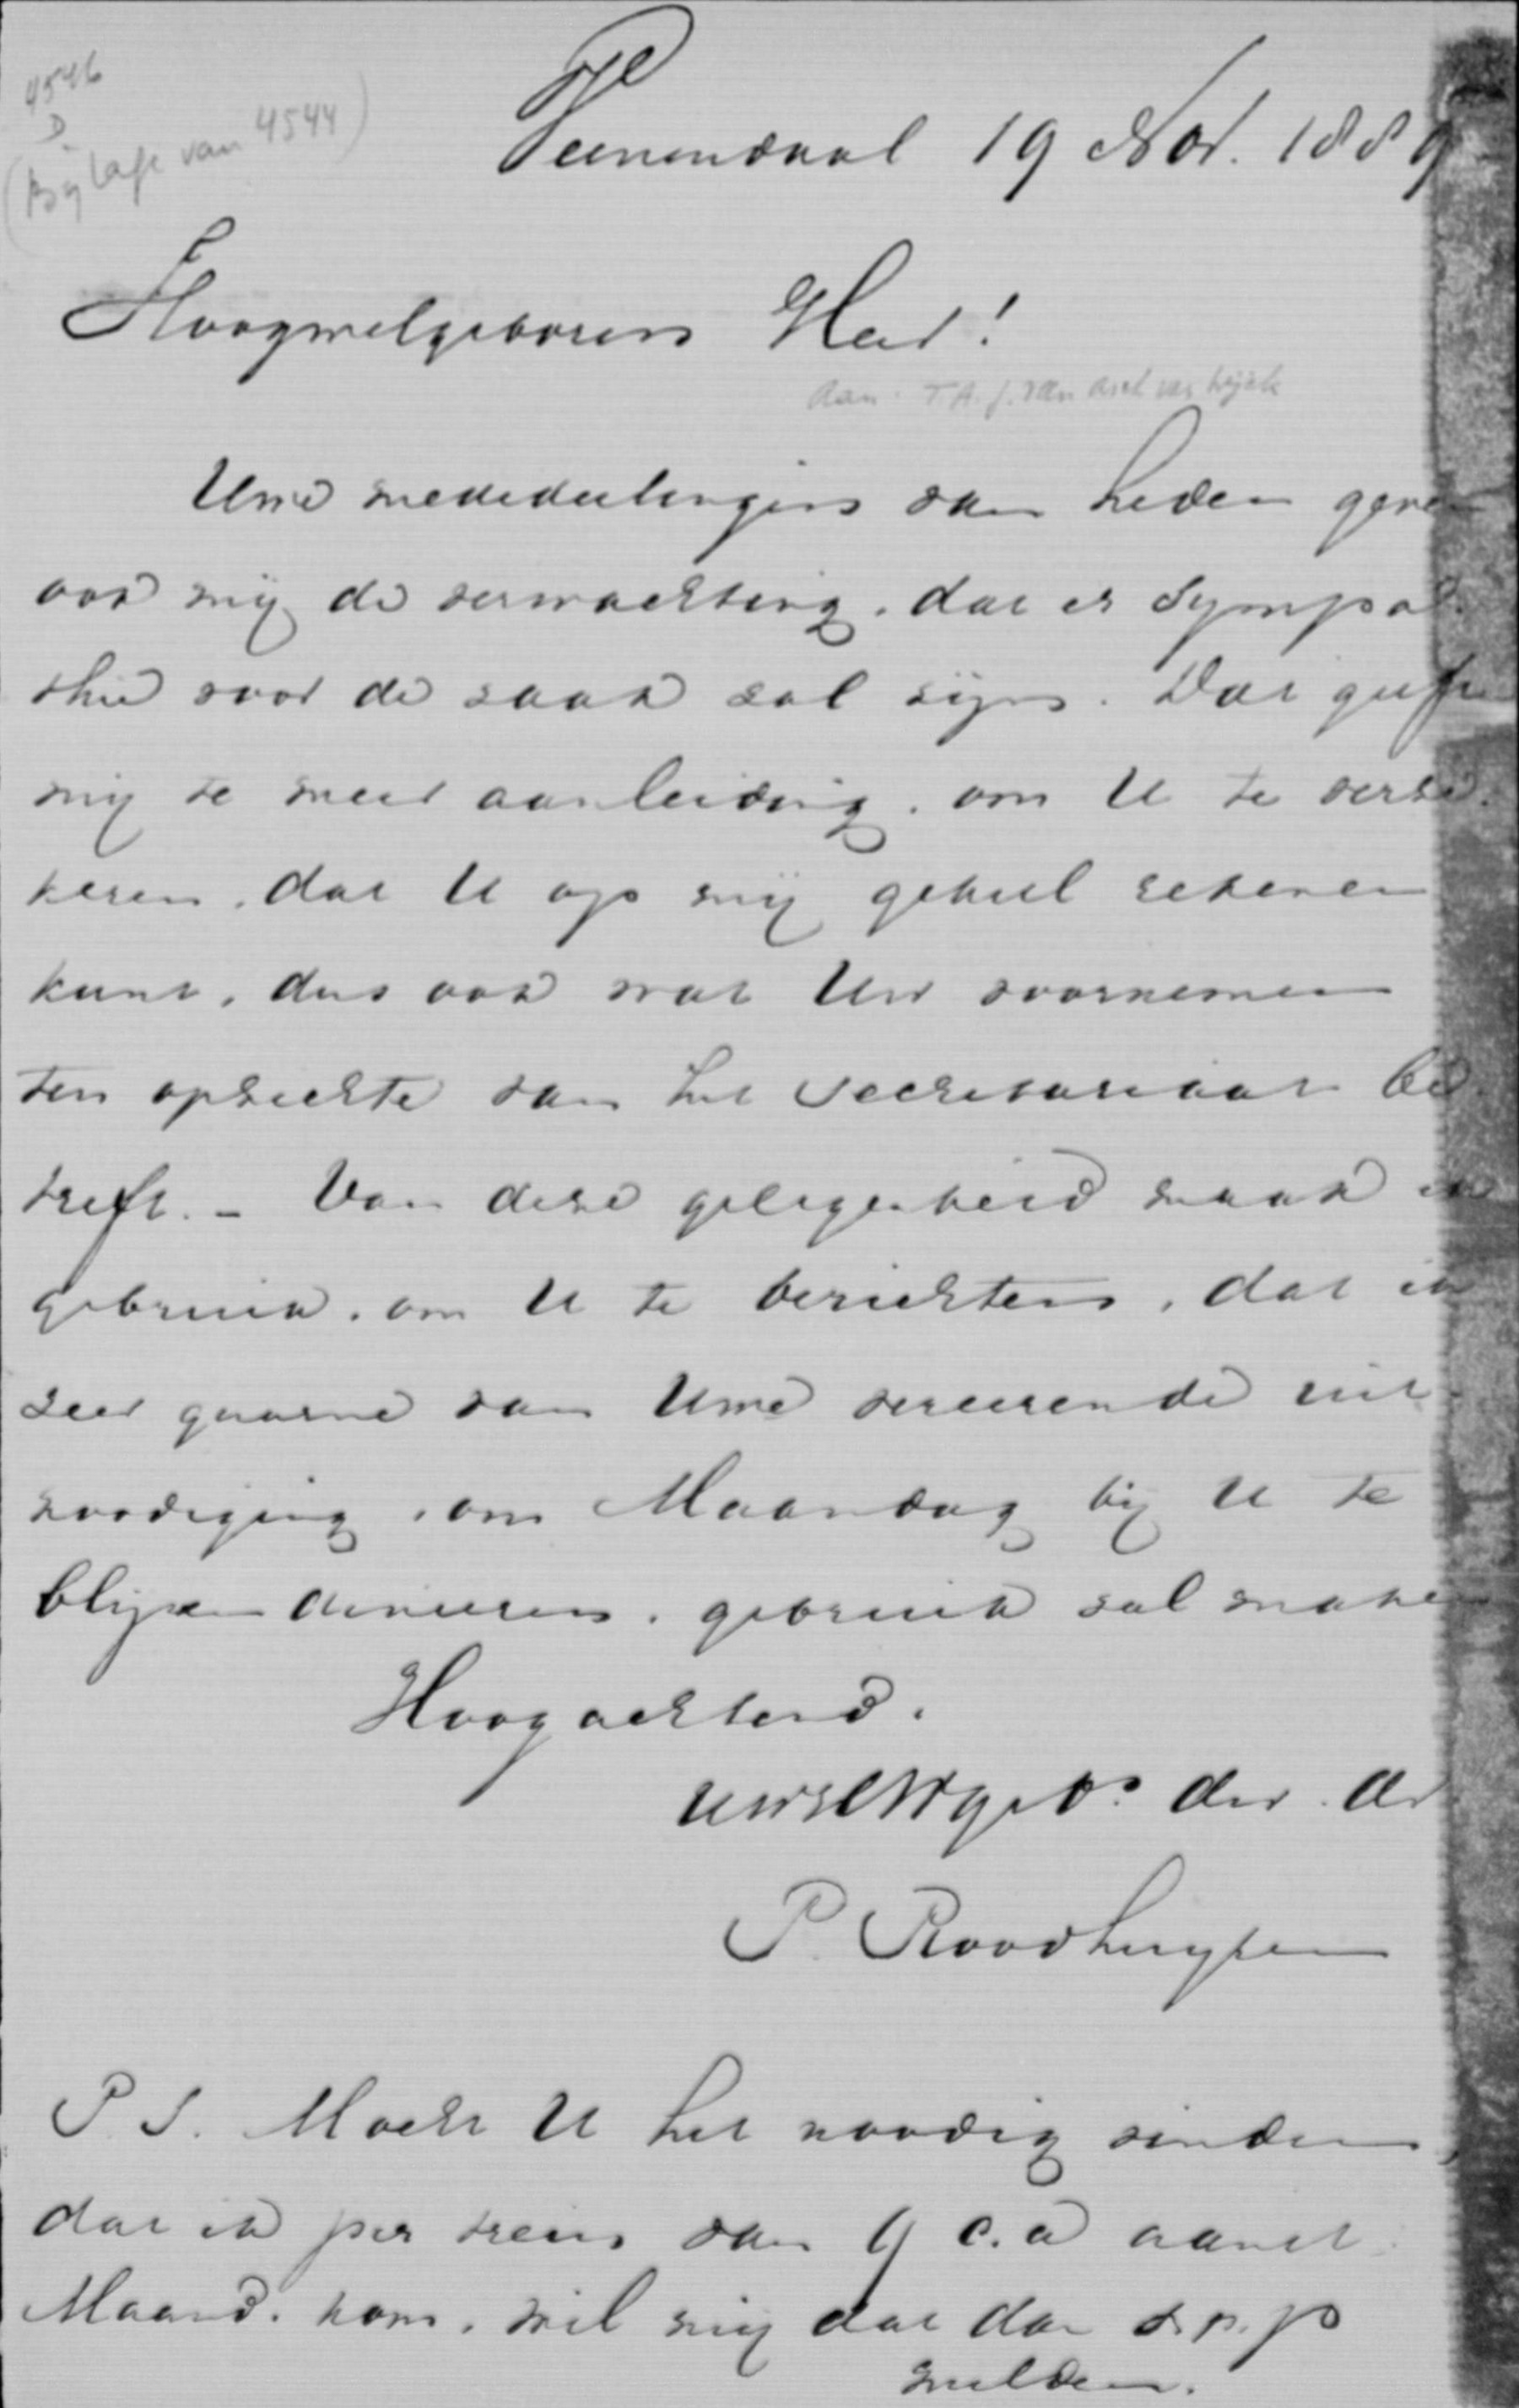 4546
D
(Bijlage van 4544)
Veenendaal 19 Nov. 1889
Hoogwelgeboren Heer!
Aan. T.A.J. van Asch van Wijck
Uwe mededeelingen van heden geven
ook mij de verwachting, dat er sympa-
thie voor de zaak zal zijn. Dat geeft
mij te meer aanleiding, om U te verze-
keren, dat U op mij geheel rekenen
kunt, dus ook wat Uw voornemen
ten opzichte van het Secretariaat be-
treft. - Van deze gelegenheid maak ik
gebruik, om U te berichten, dat ik
zeer gaarne van Uwe vereerende uit-
noodiging, om Maandag bij U te
blijven dineeren, gebruik zal maken
Hoogachtend.
UwHWGeb. dw. dr
P. Roodhuyzen
P.S. Mocht U het noodig vinden,
dat ik per trein van 9 c.a aanst.
Maand. kom, wil mij dat dan s.v.p
melden.